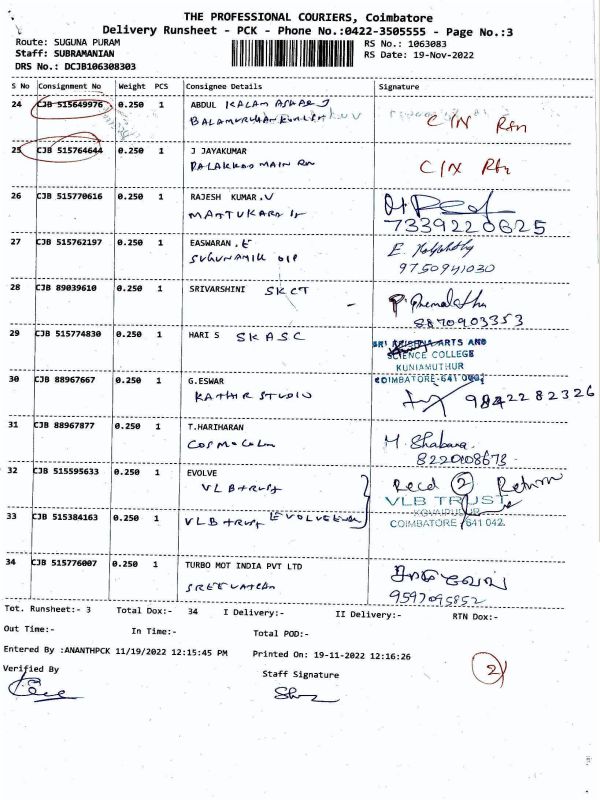 THE PROFESSIONAL COURIERS, Coimbatore
Delivery Runsheet - PCK - Phone No.:0422-3505555 - Page No.:3
Route: SUGUNA PURAM
RS No.: 1063083
Staff: SUBRAMANIAN
RS Date: 19-Nov-2022
DRS No.: DCJB106308303
S No Consignment No Weight PCS Consignee Details Signature
24 CJB 515649976 0.250 1 ABDUL KALAM
C/N Rtn
25 CJB 515764644 0.250 1 J JAYAKUMAR
PALAKKAD MAIN RD
C/N Rtn
26 CJB 515770616 0.250 1 RAJESH KUMAR.V
7339220625
27 CJB 515762197 0.250 1 EASWARAN.E
9750941030
28 CJB 89039610 0.250 1 SRIVARSHINI SKCT
P. Premalatha
8870903353
29 CJB 515774830 0.250 1 HARI S SKASC
SRI KRISHNA ARTS AND
SCIENCE COLLEGE
KUNIAMUTHUR
COIMBATORE-641 008
30 CJB 88967667 0.250 1 G.ESWAR
KATHIR STUDIO
9842282326
31 CJB 88967877 0.250 1 T.HARIHARAN
M. Shabana
8220108673
32 CJB 515595633 0.250 1 EVOLVE
VLB trust
Recd 2 Return
VLB TRUST
KOVAIPUDUR
COIMBATORE 641 042.
33 CJB 515384163 0.250 1 VLB trust
34 CJB 515776007 0.250 1 TURBO MOT INDIA PVT LTD
9597095852
Tot. Runsheet:- 3 Total Dox:- 34 I Delivery:- II Delivery:- RTN Dox:-
Out Time:- In Time:- Total POD:-
Entered By :ANANTHPCK 11/19/2022 12:15:45 PM Printed On: 19-11-2022 12:16:26
2
Verified By
Staff Signature